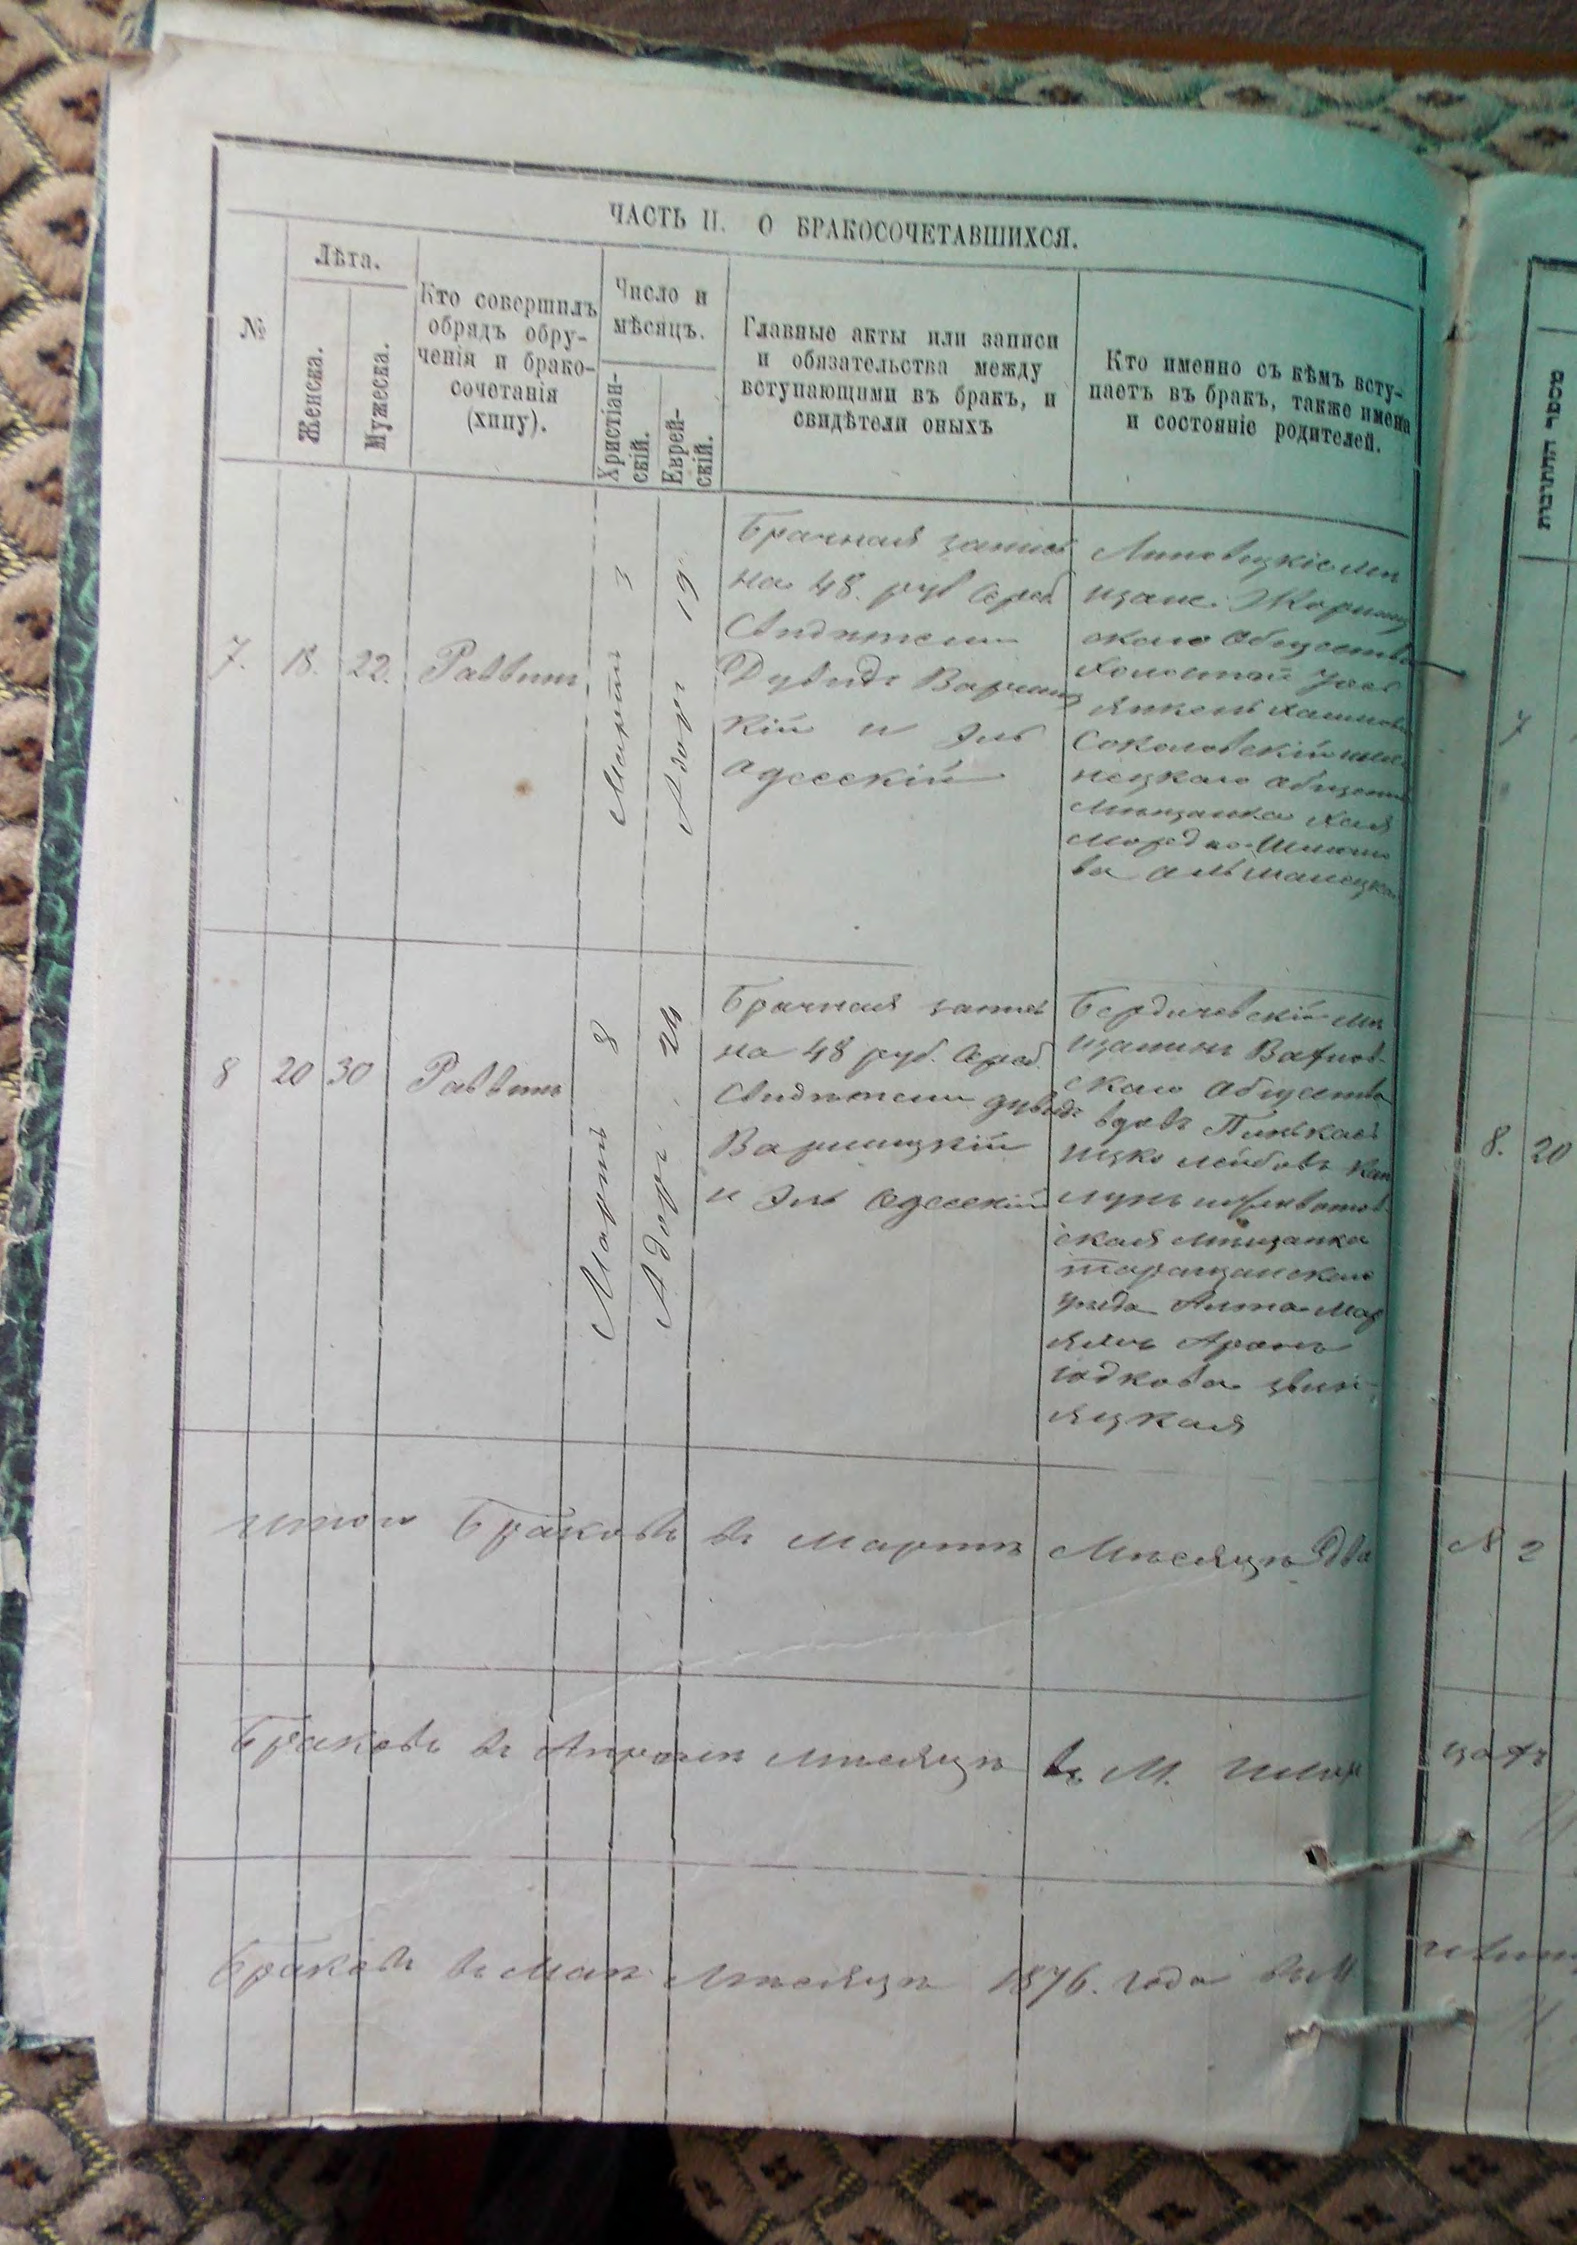 ЧАСТЬ II. О БРАКОСОЧЕТАВШИХСЯ.
№
Лѣта.
Женска.
Мужеска.
Кто совершилъ
обрядъ обру-
ченія и брако-
сочетанія
(хипу).
Число и
мѣсяцъ.
Христіан-
скій.
Еврей-
скій.
Главные акты или записи
и обязательства между
вступающими въ бракъ, и
свидѣтели оныхъ
Кто именно съ кѣмъ всту-
паетъ въ бракъ, также имена
и состояніе родителей.
7.
18.
22.
Раввинъ
Мартъ 3
Адоръ 19
Брачная запись
на 48. руб Сереб
Свидѣтели
Дувидъ Варшиц
кій и Эль
Одесскій
Липовецкіе мѣ
щане
скаго Общества
холостой
Янкель
Соколовскій
нецкаго Общест
Мѣщанка Хая
Мордко
ва
8
20
30
Раввинъ
Мартъ 8
Адоръ 24
Брачная запись
на 48 руб. Сереб.
Свидѣтели Дувидъ
Варшицкій
и Эль Одесскій
Бердичевскій мѣ
щанинъ Вахнов-
скаго Общества
вдовъ Пинхасъ
Ицко Лейбовъ Кап
лунъ
ская мѣщанка
таращанскаго
уезда Алта Мар
іямъ Аронъ
юдкова звин-
яцкая
Итого Браковъ въ Мартѣ Мѣсяцѣ Два
Браковъ въ Апрелѣ мѣсяцѣ въ М.
Браковъ въ Маѣ Мѣсяцѣ 1876. года въ М
מספר החתונות
7
8. 20
№ 2